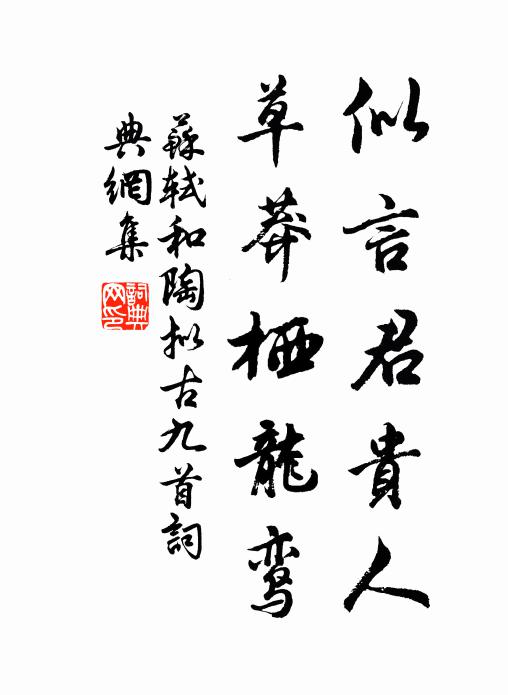 似言君貴人
草莽栖龍鸾
蘇軾和陶拟古九首詞
典網集
詞典
网印